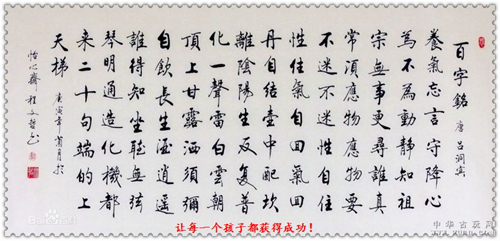 百字銘 唐 呂洞賓
養氣忘言守降心
為不為動靜知祖
宗無事更尋誰真
常須應物應物要
不迷不迷性自住
性住氣自回氣回
丹自結壺中配坎
離陰陽生反復普
化一聲雷白雲朝
頂上甘露洒須彌
自飲長生酒逍遙
誰得知坐聽無弦
琴明通造化機都
來二十句端的上
天梯
庚寅年月於
怡心齋 程文哲
让每一个孩子都获得成功!
中华古玩网